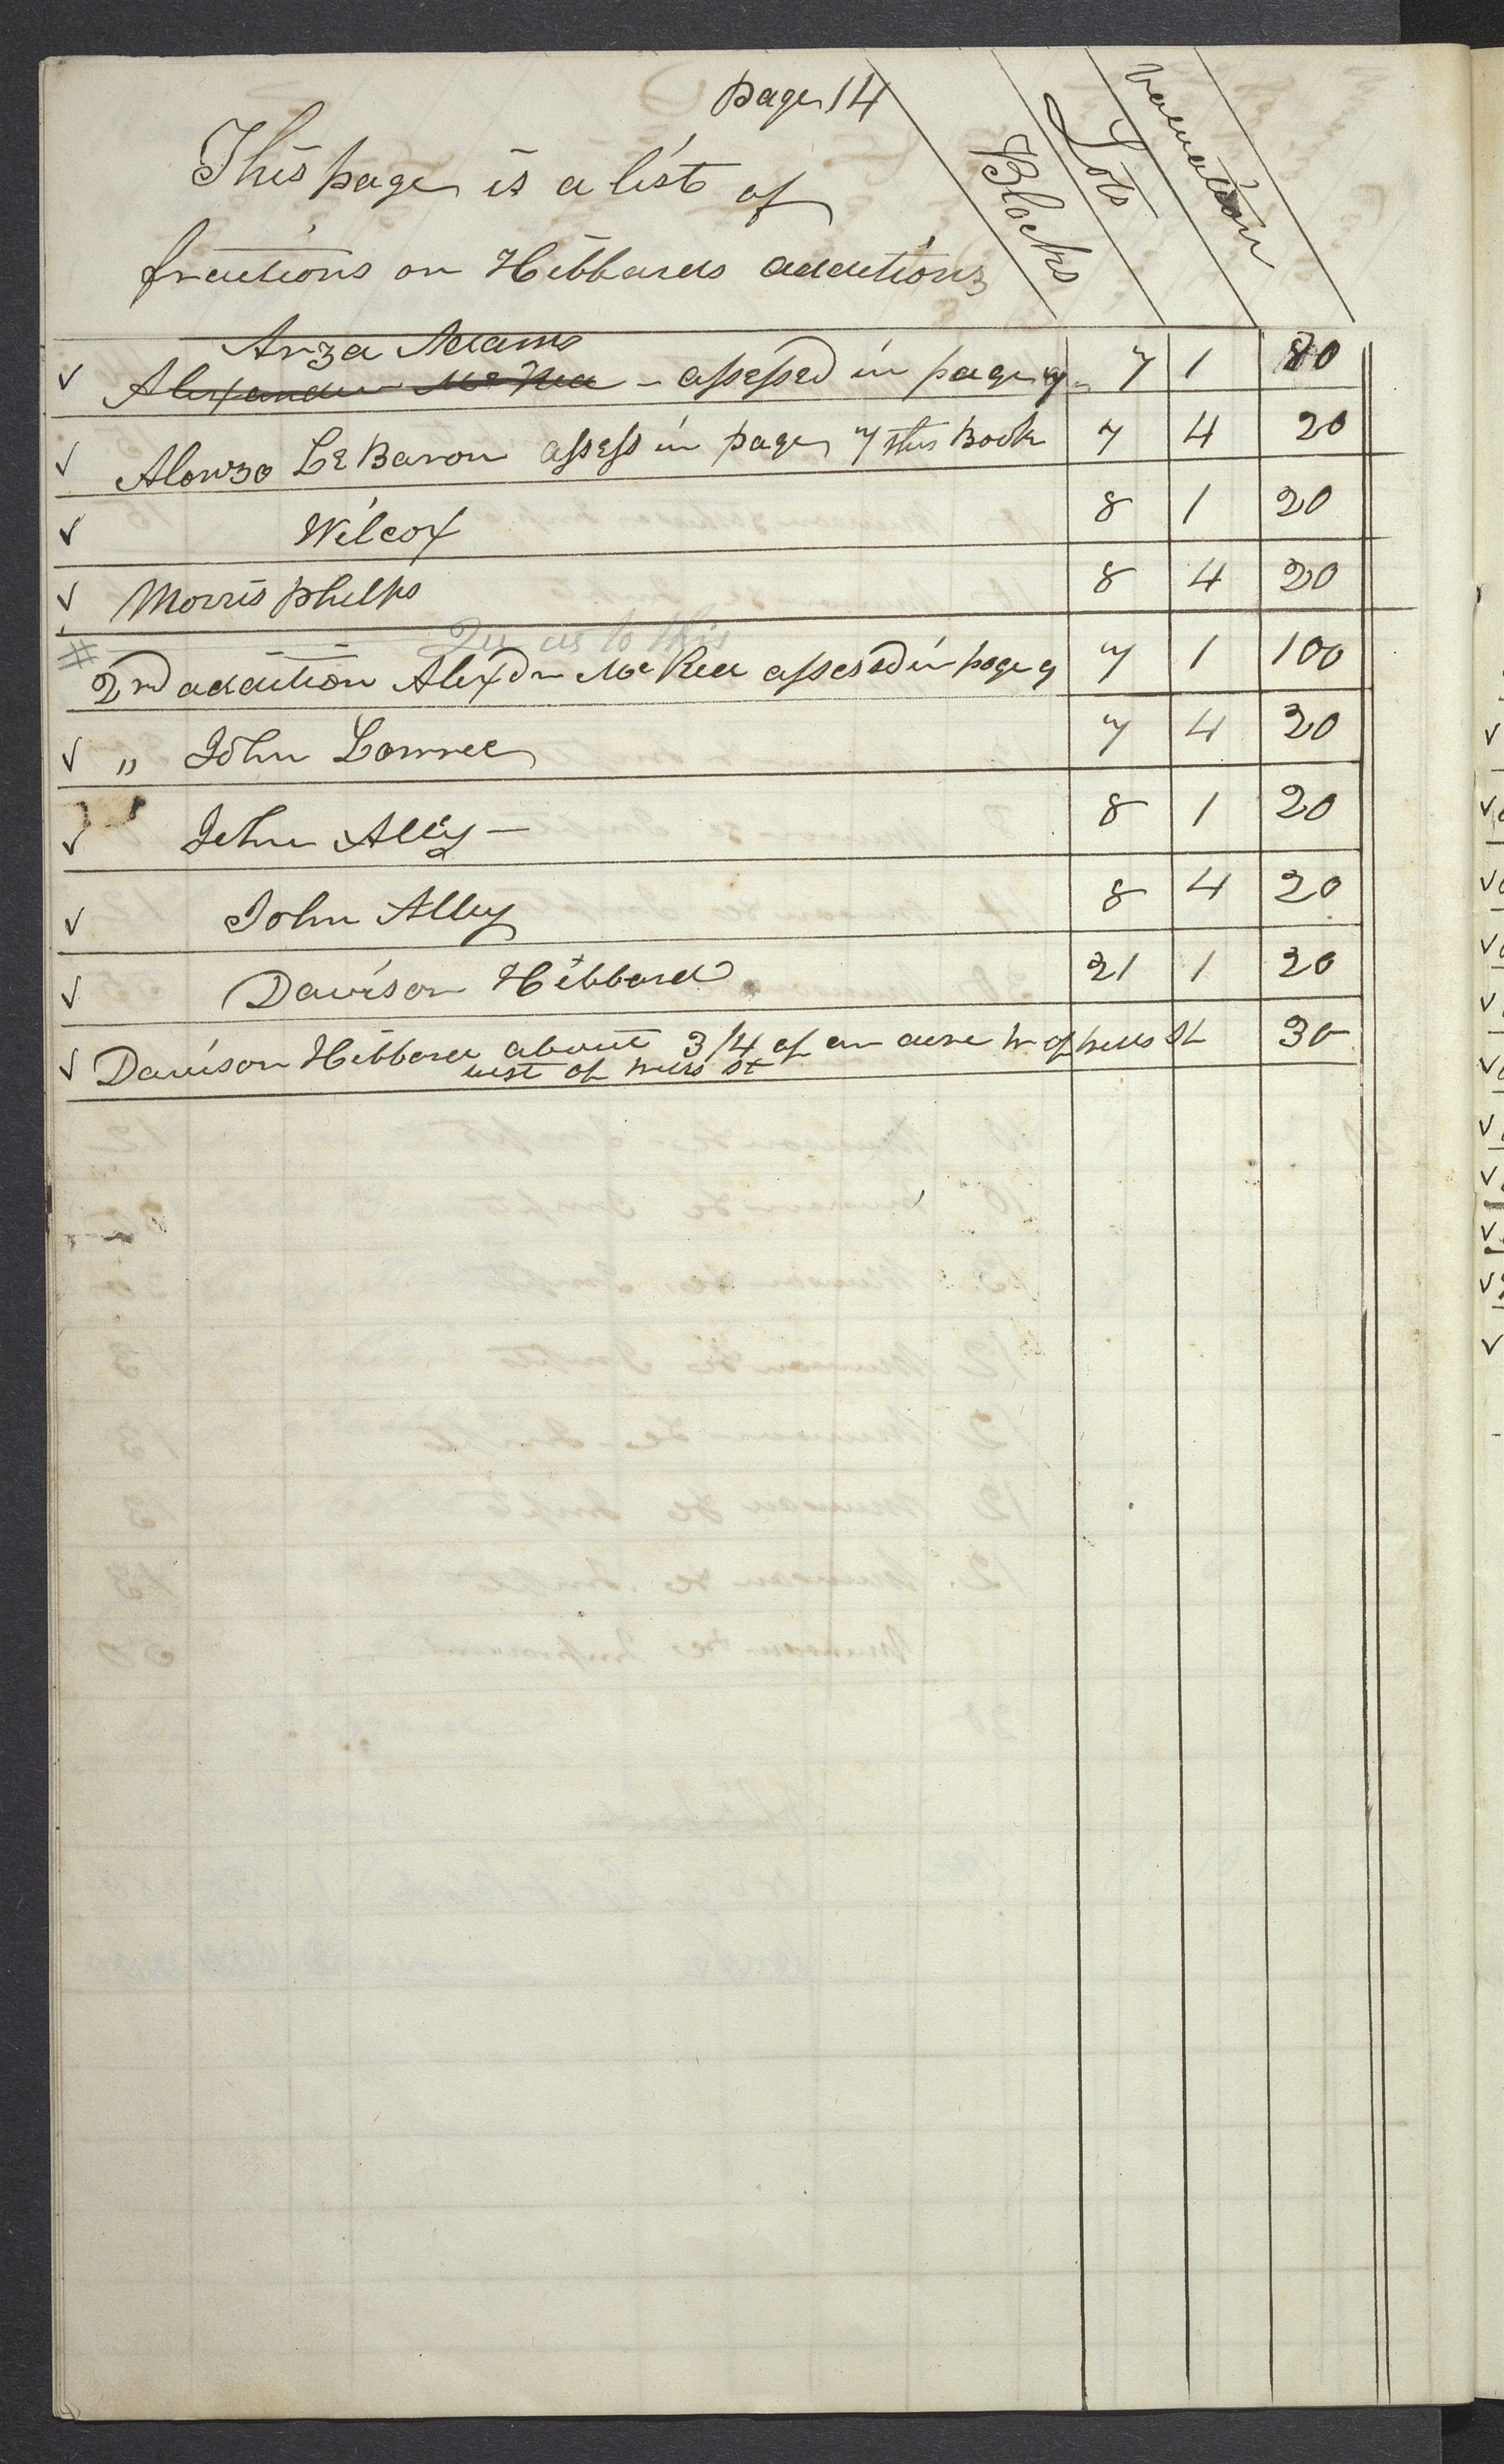 page 14
Blocks
Lots
valuation
This page is a list of
fractions on Hibbards additions
Arza Adams
✓ Alexander McRea - assessed in page 9 - 7 1 20
✓ Alonzo LeBaron assess in page 7 this Book 7 4 20
✓ Wilcox 8 1 20
✓ Morris phelps 8 4 20
Qu as to this
# 2nd addition Alexdr McRea assessed in page 9 7 1 100
✓ " John Lowree 7 4 20
✓ " John Ally - 8 1 20
✓ John Alley 8 4 20
✓ Davison Hibbard 21 1 20
✓ Davison Hibbard about 3/4 of an acre W of wells St 30
west of wells st